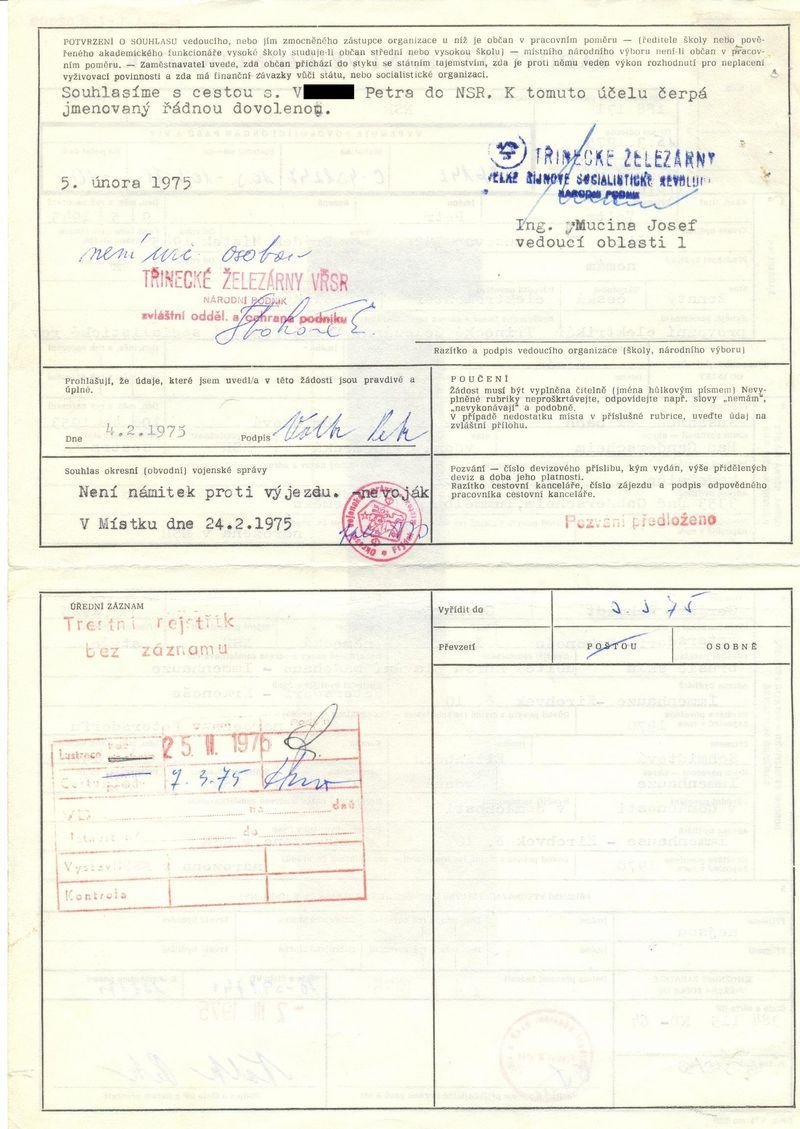 POTVRZENÍ O SOUHLASU vedoucího, nebo jím zmocněného zástupce organizace u níž je občan v pracovním poměru — (ředitele školy nebo pově-
řeného akademického funkcionáře vysoké školy studuje-li občan střední nebo vysokou školu) — místního národního výboru není-li občan v pracov-
ním poměru. — Zaměstnavatel uvede, zda občan přichází do styku se státním tajemstvím, zda je proti němu veden výkon rozhodnutí pro neplacení
vyživovací povinnosti a zda má finanční závazky vůči státu, nebo socialistické organizaci.
Souhlasíme s cestou s. V Petra do NSR. K tomuto účelu čerpá
jmenovaný řádnou dovolenou.
TŘINECKÉ ŽELEZÁRNY
VELKÉ ŘÍJNOVÉ SOCIALISTICKÉ REVOLUCE
NÁRODNÍ PODNIK
5. února 1975
Ing. Mucina Josef
vedoucí oblasti 1
není osobou
TŘINECKÉ ŽELEZÁRNY VŘSR
NÁRODNÍ PODNIK
zvláštní odděl. a ochrana podniku
Razítko a podpis vedoucího organizace (školy, národního výboru)
Prohlašuji, že údaje, které jsem uvedl/a v této žádosti jsou pravdivé a
úplné.
Dne 4.2.1975 Podpis
POUČENÍ
Žádost musí být vyplněna čitelně (jména hůlkovým písmem) Nevy-
plněné rubriky neproškrtávejte, odpovídejte např. slovy „nemám",
„nevykonávají a podobně.
V případě nedostatku místa v příslušné rubrice, uveďte údaj na
zvláštní přílohu.
Souhlas okresní (obvodní) vojenské správy
Není námitek proti výjezdu. -nevoják
V Místku dne 24.2.1975
Pozvání — číslo devizového příslibu, kým vydán, výše přidělených
deviz a doba jeho platnosti.
Razítko cestovní kanceláře, číslo zájezdu a podpis odpovědného
pracovníka cestovní kanceláře.
Pozvání předloženo
ÚŘEDNÍ ZÁZNAM
Trestní rejstřík
bez záznamu
Vyřídit do 3.3.75
Převzetí POŠTOU OSOBNĚ
Lustrace 25. III. 1975
7.3.75
na dnů
do
Kontrola